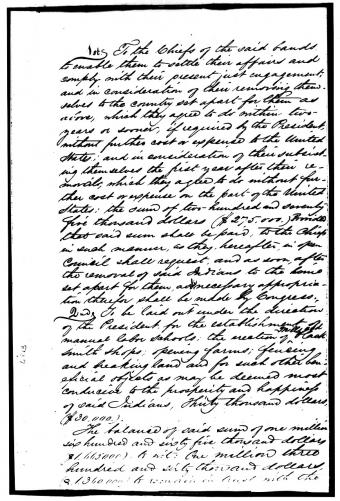 1st, To the Chiefs of the said bands
to enable them to settle their affairs and
comply with their present just engagement,
and in consideration of their removing them-
selves to the country set apart for them as
above, which they agree to do within two
years or sooner, if required by the President,
without further cost or expense to the United
States, and in consideration of their subsist-
ing themselves the first year after their re-
moval, which they agree to do without fur-
ther cost or expense on the part of the United
States, the sum of two hundred and seventy
five thousand dollars ($275,000.) Provided
that said sum shall be paid, to the Chiefs
in such manner, as they, hereafter, in open
Council shall request, and as soon, after
the removal of said Indians to the home
set apart for them, as necessary appropria-
tion therefor shall be made by Congress.
2nd, To be laid out under the direction
of the President for the establishment of
manual labor schools; the erection of mills
and black
smith shops; opening farms; fencing
and breaking land and for such other ben-
eficial objects as may be deemed most
conducive to the prosperity and happiness
of said Indians, Thirty thousand dollars,
($30,000.)
The balance of said sum of one million
six hundred and sixty five thousand dollars
$1,665,000) to wit: One million three
hundred and sixty thousand dollars,
$1,360,000) to remain in trust with the